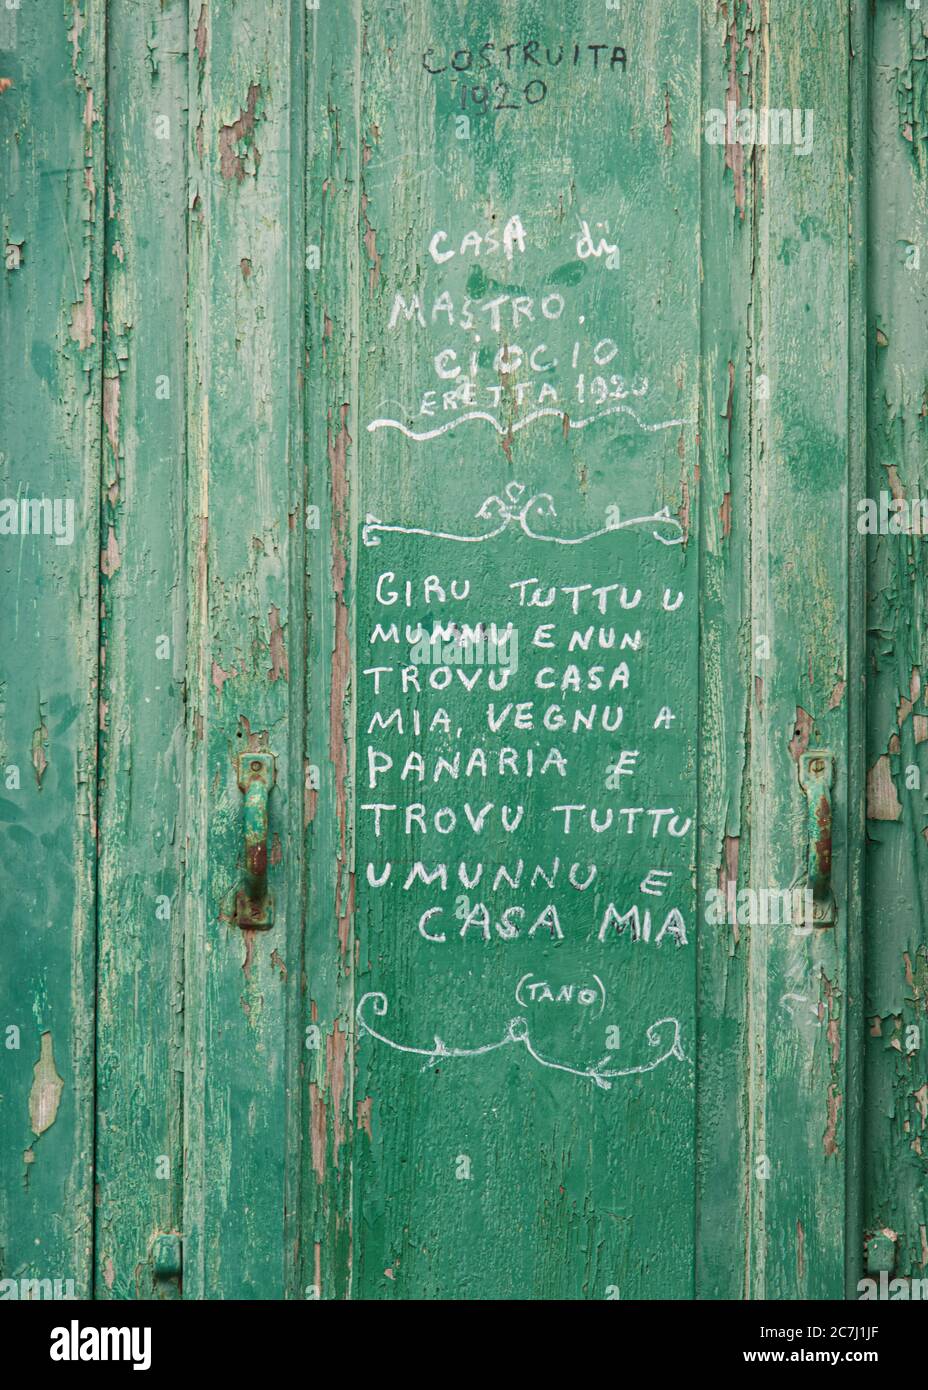 COSTRUITA
1920
CASA di
MASTRO.
CIOCIO
ERETTA 1920
GIRU TUTTU U
MUNNU E NUN
TROVU CASA
MIA, VEGNU A
PANARIA E
TROVU TUTTU
U MUNNU E
CASA MIA
(TANO)
alamy
Image ID: 2C7J1JF
www.alamy.com